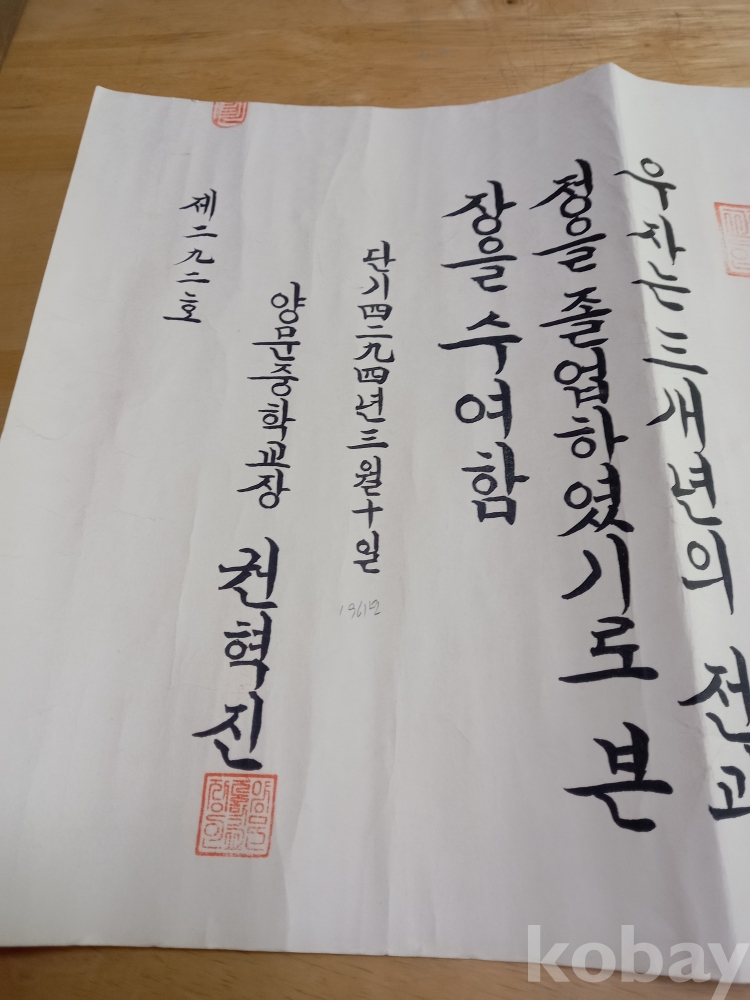 우자는 三개년의 전과
정을 졸업하였기로 본
장을 수여함
단기四二九四년三월十일
1961년
양문중학교장 권혁진
제二九二호
kobay